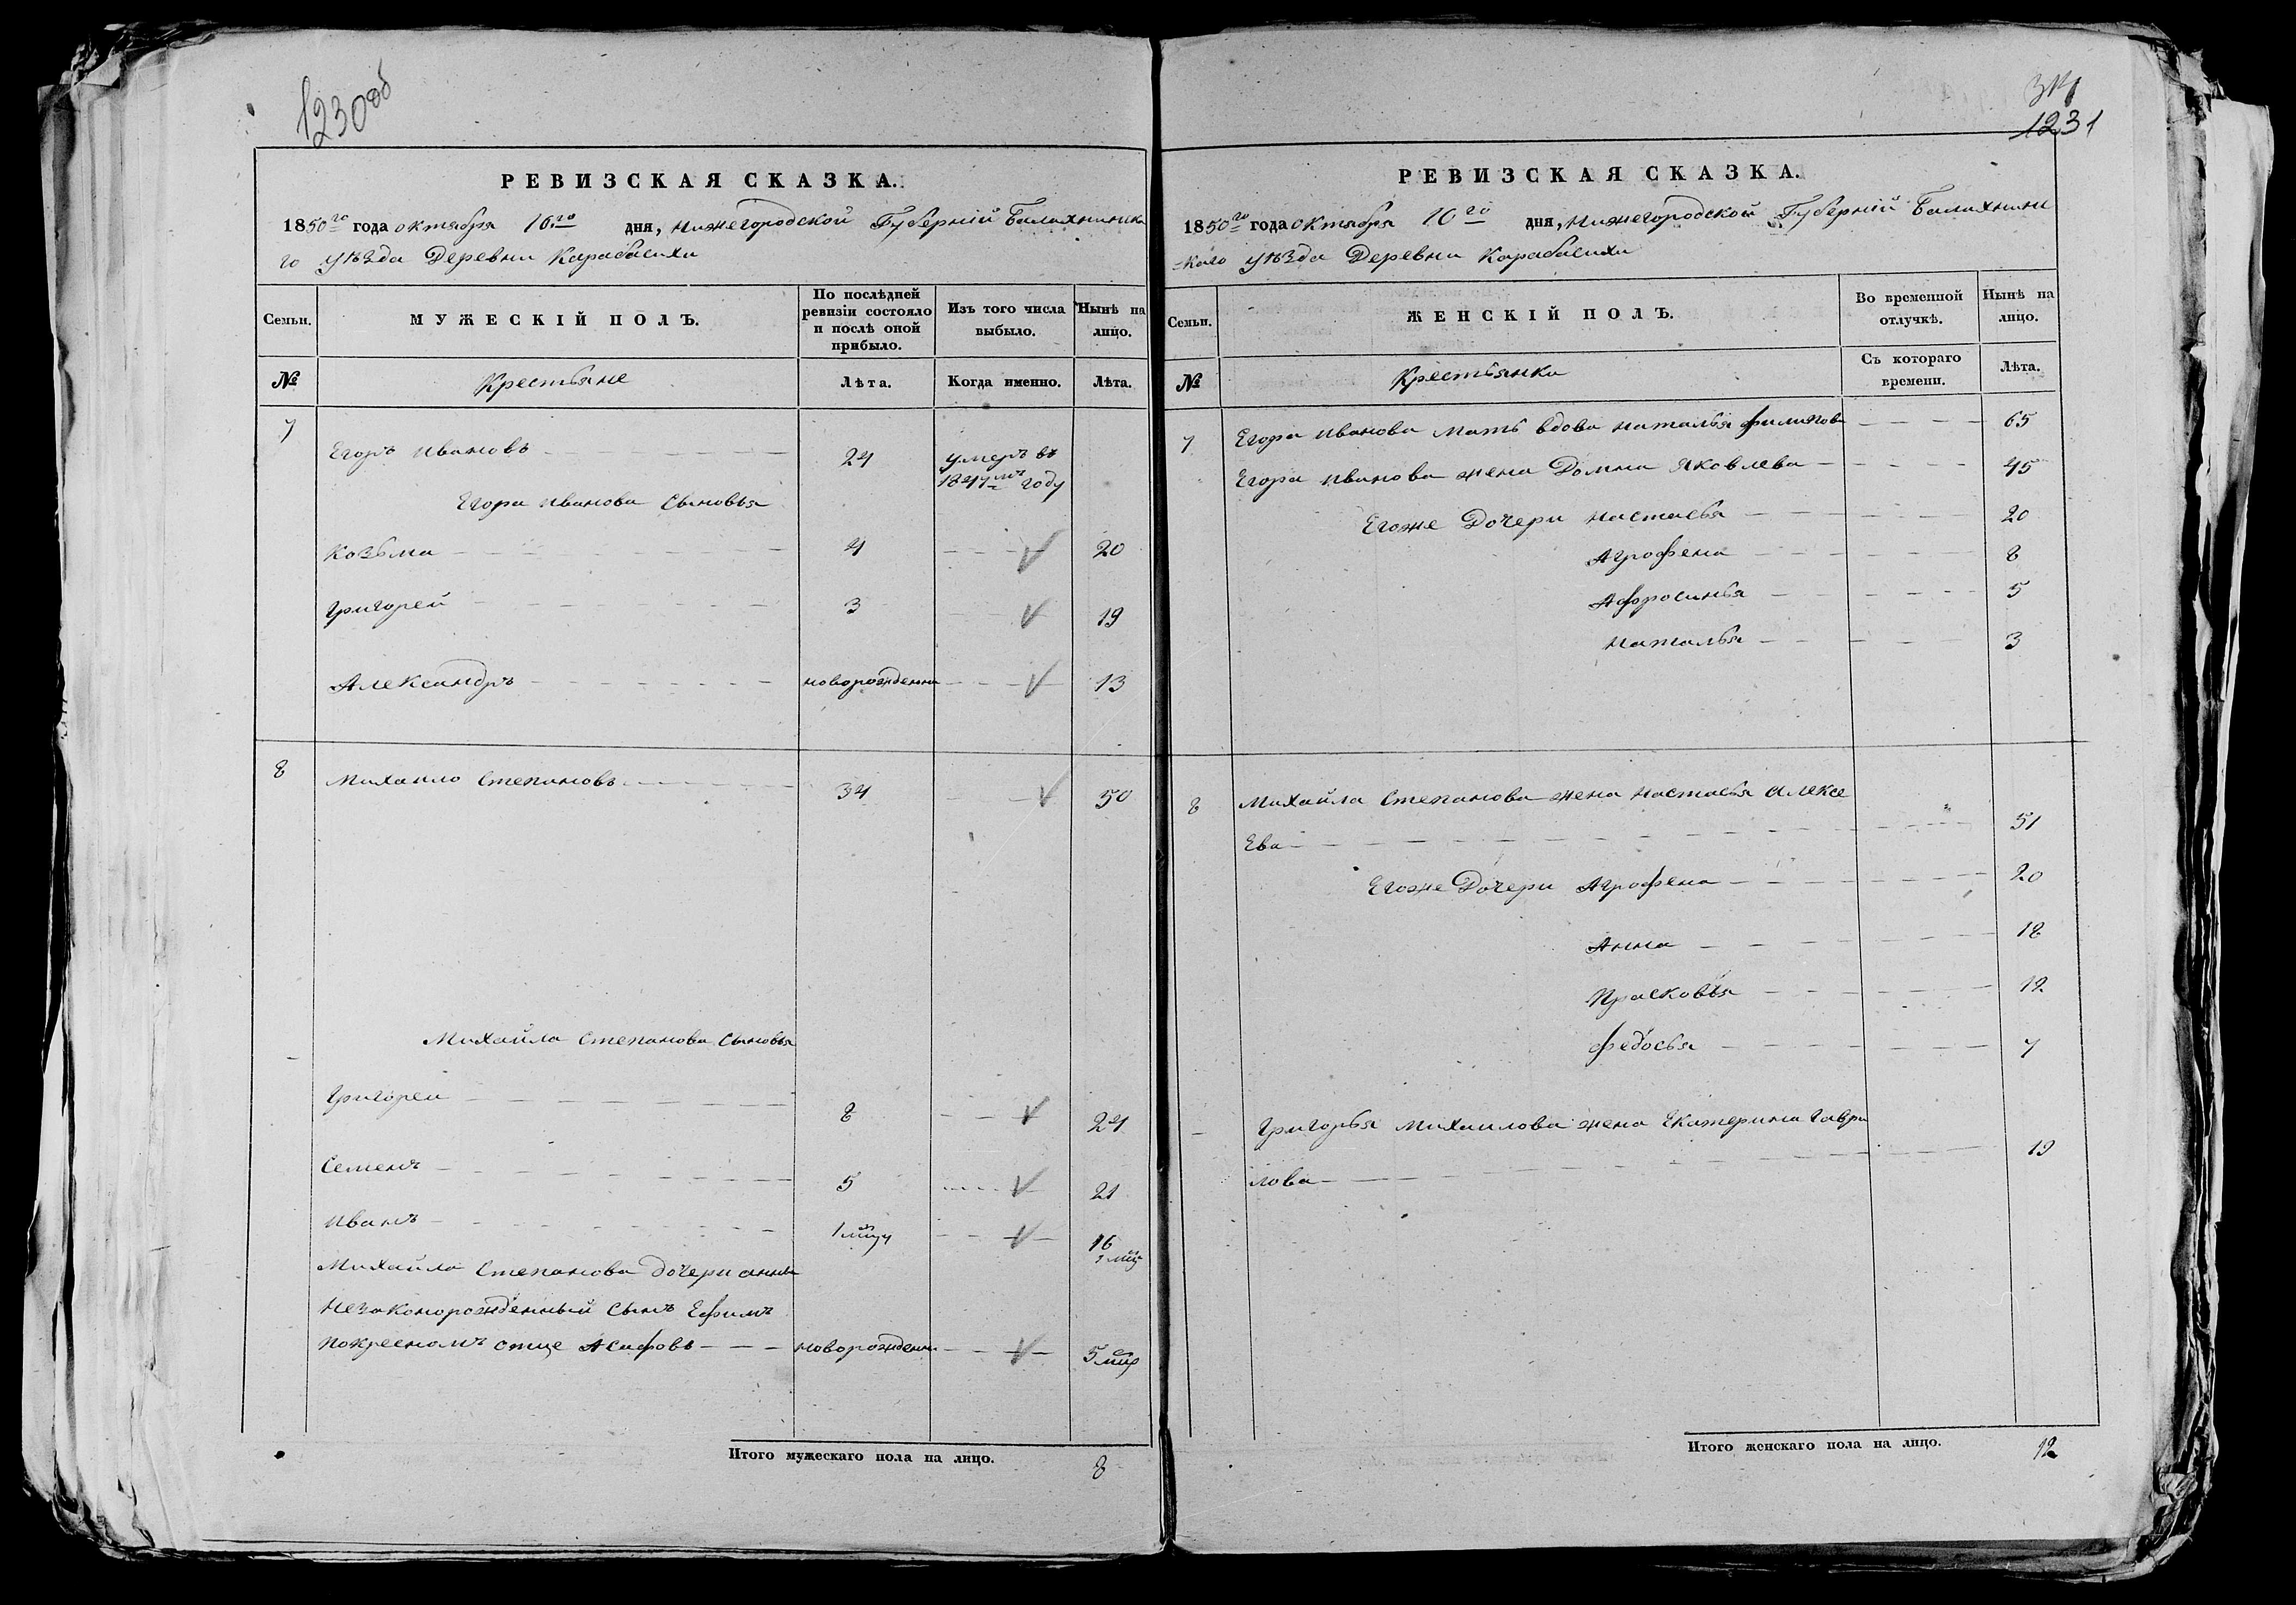 1230об
РЕВИЗСКАЯ СКАЗКА.
1850го года октября 10го дня, Нижегородской Губерніи Балахнинска
го уѣзда Деревни Карабасихи
Семьи. МУЖЕСКІЙ ПОЛЪ. По послѣдней ревизіи состояло и послѣ оной прибыло. Изъ того числа выбыло. Нынѣ на лицо.
№ Крестьяне Лѣта. Когда именно. Лѣта.
7
Егоръ Ивановъ 24 умеръ въ
1847мъ году
Егора Иванова Сыновья
Козьма 4 20
Григорей 3 19
Александръ новорожденн 13
8 Михаило Степановъ 34 50
Михайла Степанова Сыновья
Григореи 8 24
Семенъ 5 21
Иванъ 1 мцъ 16
1 мцъ
Михайла Степанова дочери анны
Незаконорожденный Сынъ Ефимъ
покресномъ отце Асафовъ новорожденн 5 мцъ
Итого мужескаго пола на лицо. 8
314
1231
РЕВИЗСКАЯ СКАЗКА.
1850го года октября 10го дня, Нижегородской Губерніи Балахнин
скаго уѣзда Деревни Карабасихи
Семьи. ЖЕНСКІЙ ПОЛЪ. Во временной отлучкѣ. Нынѣ на лицо.
№ Крестьянки Съ котораго времени. Лѣта.
7 Егора Иванова Мать вдова Наталья филипова 65
Егора Иванова жена Домна Яковлева 45
Егоже Дочери Настасья 20
Агрофена 8
Афросинья 5
Наталья 3
8 Михайла Степанова жена Настасья Алексе
Ева 51
Егоже Дочери Агрофена 20
Анна 18
Прасковья 12
федосья 7
Григорья Михаилова жена Екатерина Гаври
лова 19
Итого женскаго пола на лицо. 12